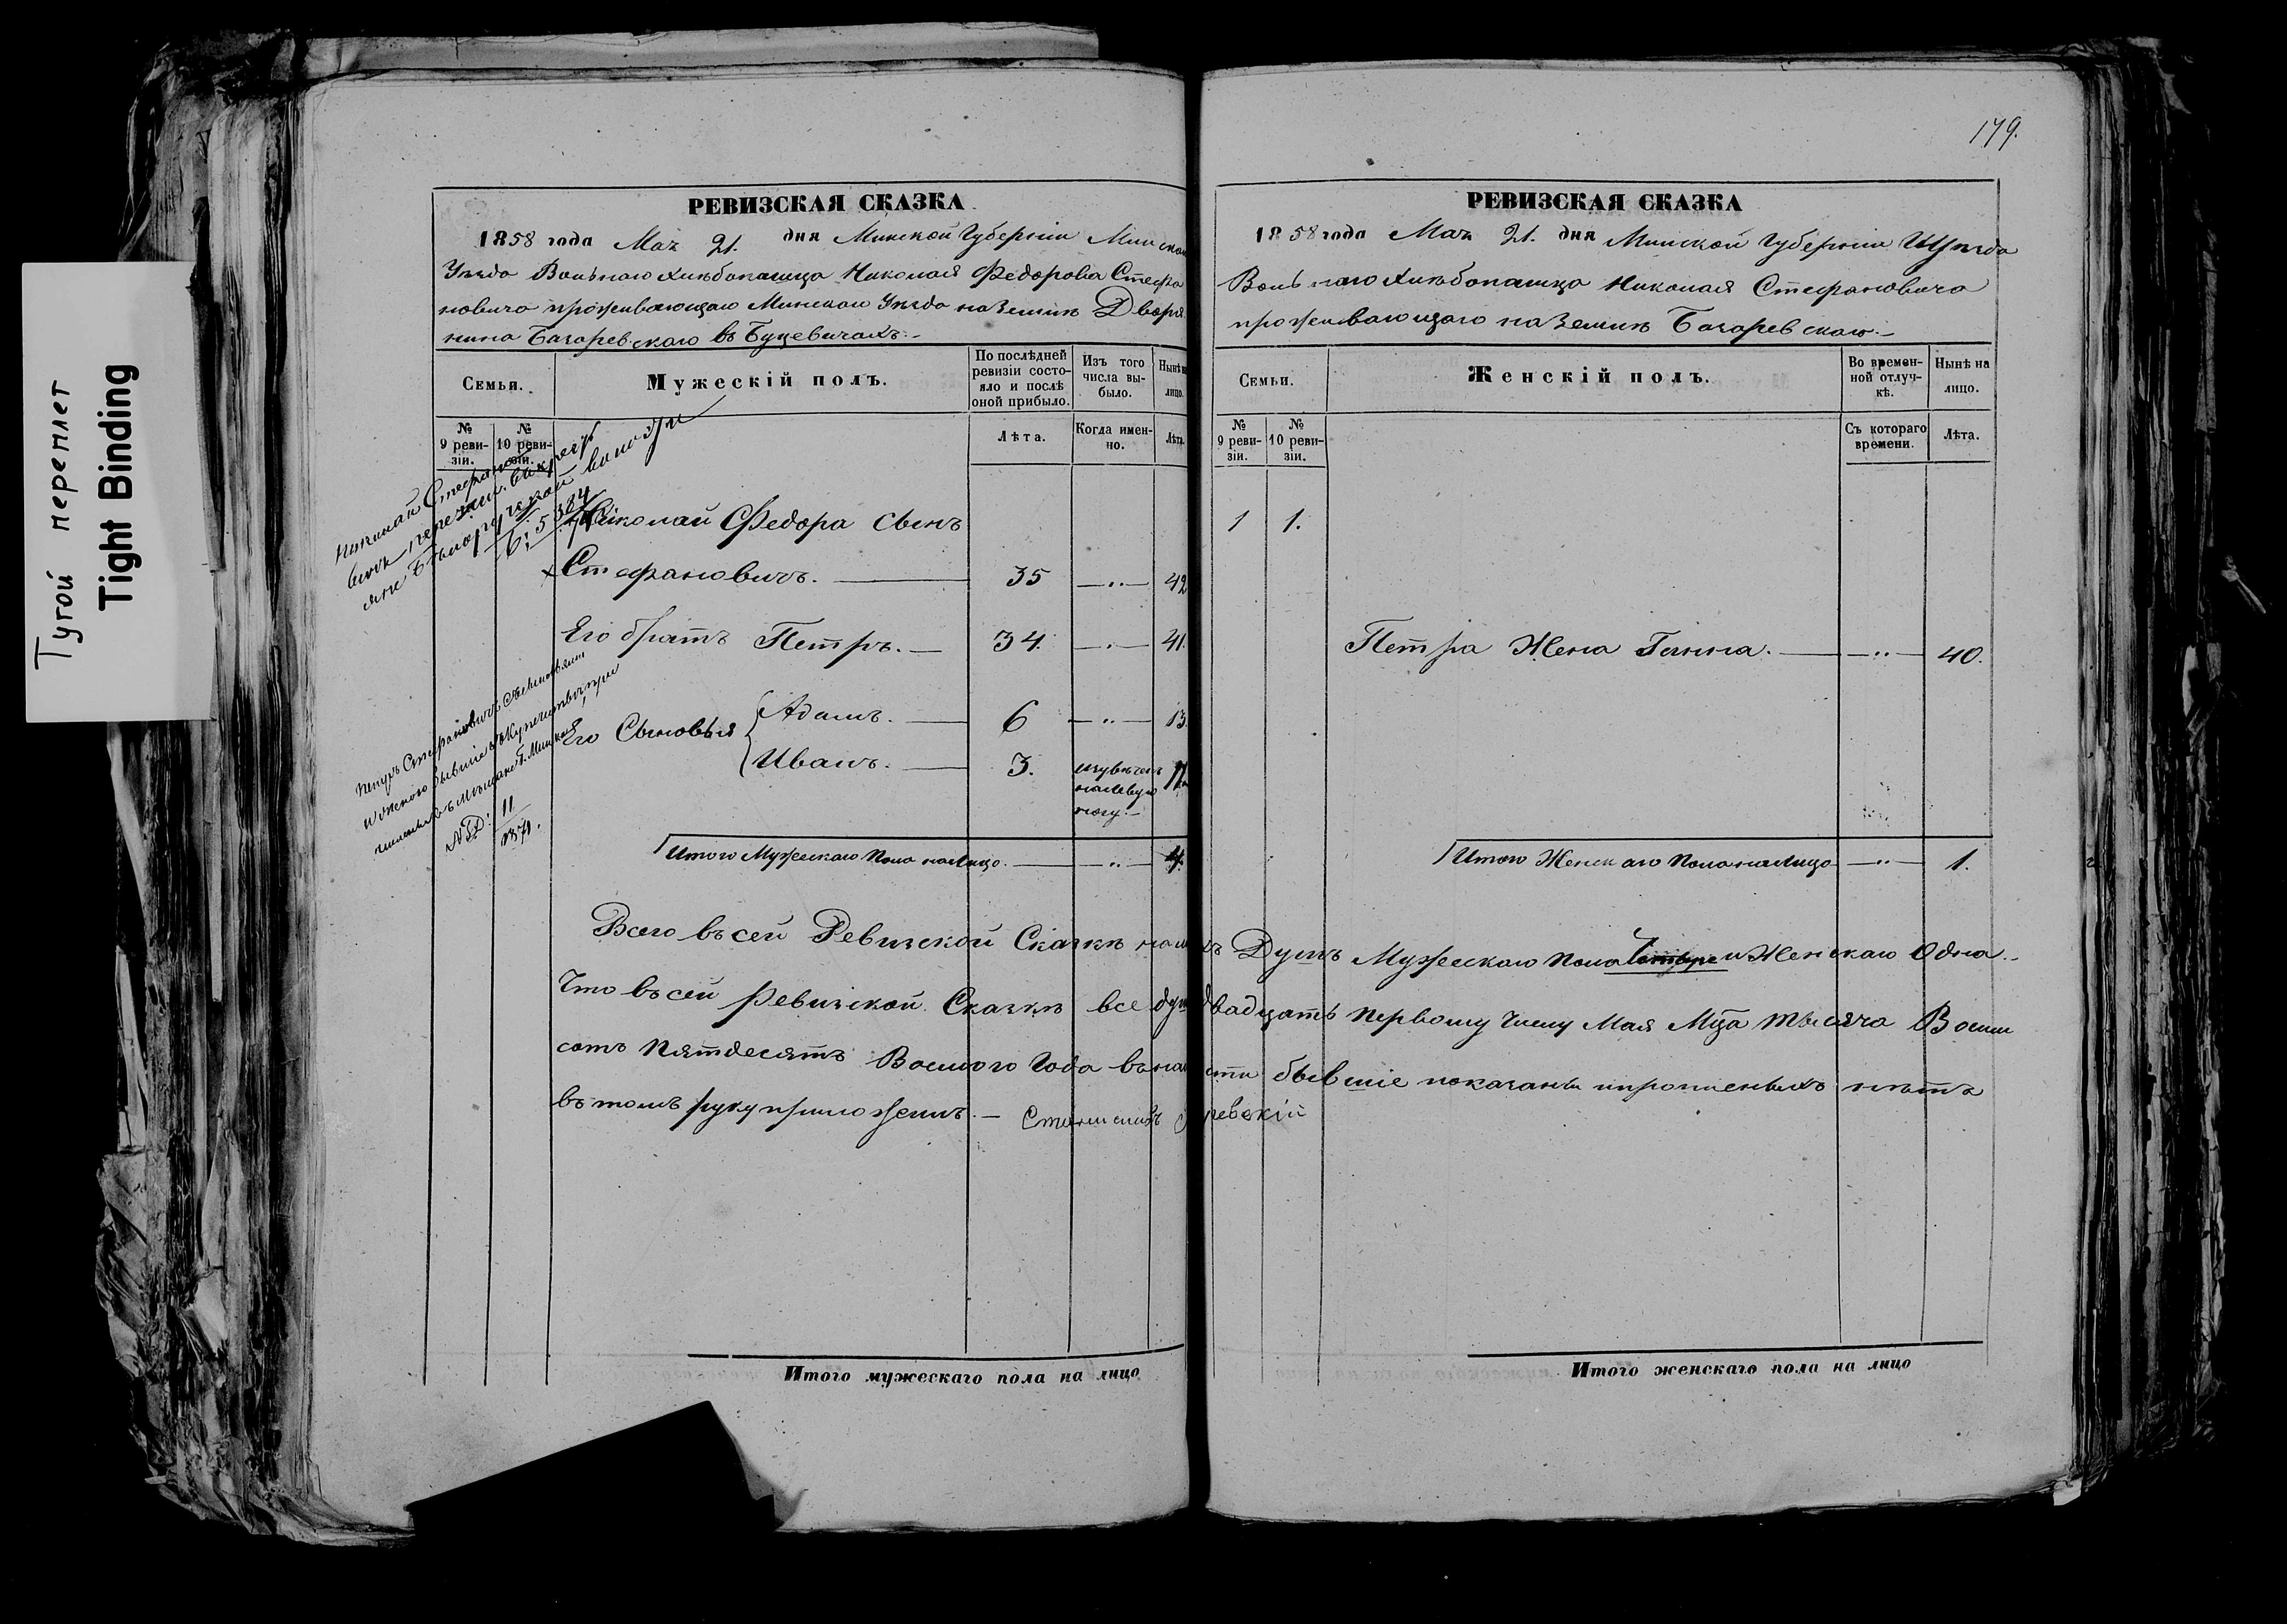 Тугой переплет
Tight Binding
РЕВИЗСКАЯ СКАЗКА
1858 года Мая 21. дня Минской Губерніи Минскаго
Уѣзда Вольнаго Хлѣбопашца Николая Федорова Стефа
новича проживающаго Минскаго Уѣзда на Землѣ Дворя
нина Багаревскаго въ Буцевичахъ.
Семьи.
Мужескій полъ.
По послѣдней ревизіи состояло и послѣ оной прибыло.
Изъ того числа выбыло.
Нынѣ на лицо.
№ 9 ревизіи.
№ 10 ревизіи.
Лѣта.
Когда именно.
Лѣта.
Николай Стефано
вичъ
Николай Федора сынъ
Стефановичъ. 35 42
Его братъ Петръ. 34. 41.
Его Сыновья Адамъ. 6 13.
Иванъ. 3.
левую
ногу.
Петръ Стефановичъ
11
1874.
Итого Мужескаго Пола на лицо. 4.
Всего въ сей Ревизской Сказкѣ
Что въ сей Ревизской Сказкѣ все
сотъ Пятдесятъ Восмого Года
въ томъ руку приложилъ.
Итого мужескаго пола на лицо
179.
РЕВИЗСКАЯ СКАЗКА
1858 года Мая 21. дня Минской Губерніи Уѣзда
Вольнаго Хлѣбопашца Николая Стефановича
проживающаго на Землѣ Багаревскаго.
Семьи.
Женскій полъ.
Во временной отлучкѣ.
Нынѣ на лицо.
№ 9 ревизіи.
№ 10 ревизіи.
Съ котораго времени.
Лѣта.
1 1.
Петра Жена Ганна. 40.
Итого Женскаго Пола на лицо 1.
Душъ Мужескаго Пола Четыре и Женскаго Одна.
двадцать первому числу Мая Мца тысяча Восем
бывшіе показаны и прописныхъ нѣтъ
Итого женскаго пола на лицо